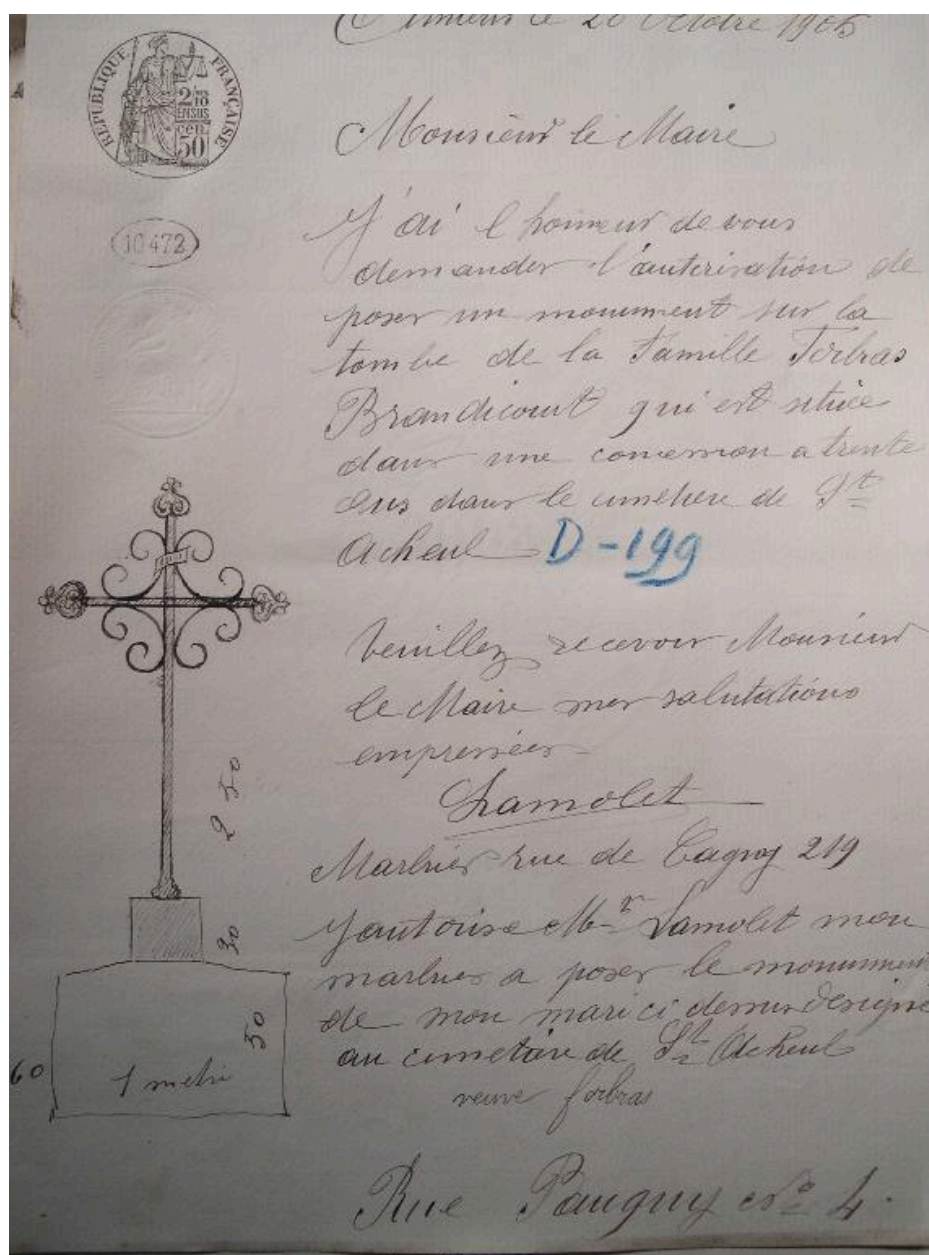 Amiens le 20 Octobre 1905
RÉPUBLIQUE FRANÇAISE
2/10
EN SUS
50 cen.
Monsieur le Maire
10472
J'ai l honneur de vous
demander l'autorisation de
poser un monument sur la
tombe de la famille Forbras
Brandicourt qui est située
dans une concession a trente
ans dans le cimetiere de St
Acheul D-199
Veuillez recevoir Monsieur
le Maire mes salutations
empressées
Lamolet
Marbrier rue de Cagny 219
J'autorise Mr Lamolet mon
marbrier a poser le monument
de mon mari ci dessus designe
au cimetaire de St Acheul
veuve forbras
Rue No 4.
2 50
30
50
60
1 metre